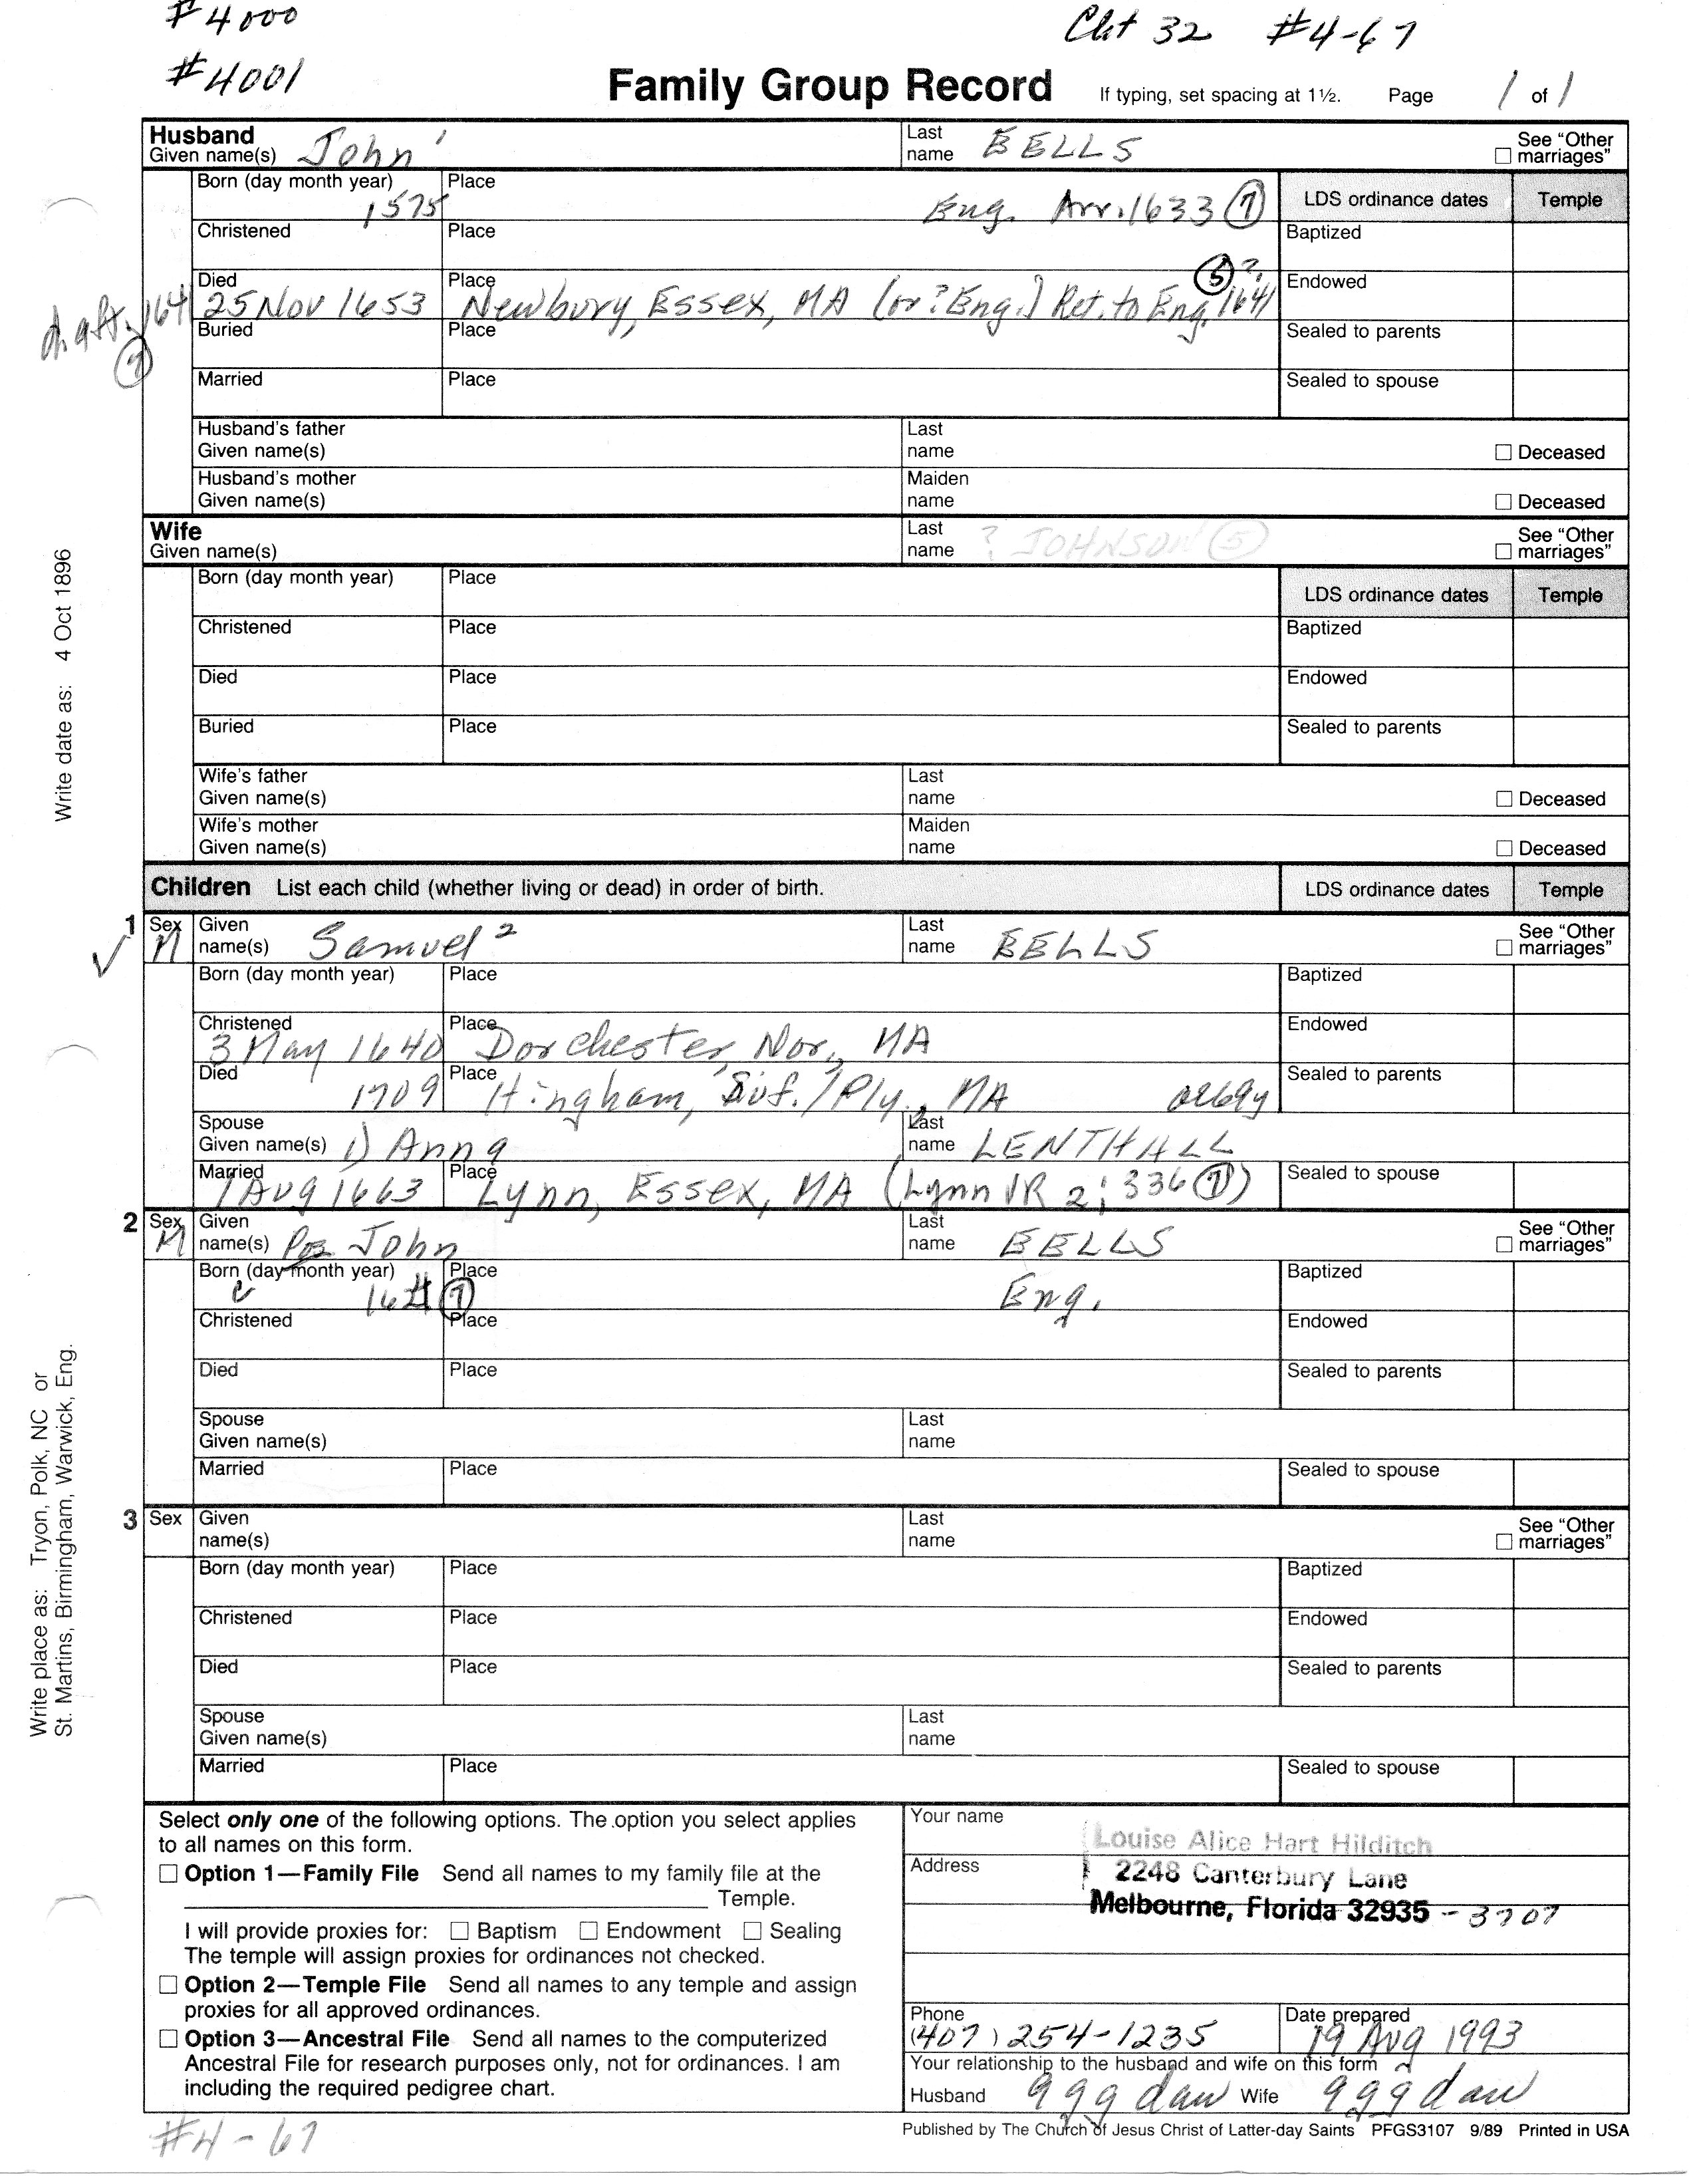 #4000
Cht 32 #4-67
#4001
Family Group Record If typing, set spacing at 1½. Page 1 of 1
Husband
Given name(s) John¹ Last name EELLS See "Other marriages"
Born (day month year) 1575 Place Eng. Arr. 1633 (7) LDS ordinance dates Temple
Christened Place Baptized
Died 25 Nov 1653 Place Newbury, Essex, MA (or ? Eng.) Ret. to Eng. 1641 (5)? Endowed
d. aft. 1641 (7)
Buried Place Sealed to parents
Married Place Sealed to spouse
Husband's father
Given name(s) Last name Deceased
Husband's mother
Given name(s) Maiden name Deceased
Wife
Given name(s) Last name ? JOHNSON (5) See "Other marriages"
Born (day month year) Place LDS ordinance dates Temple
Christened Place Baptized
Died Place Endowed
Buried Place Sealed to parents
Wife's father
Given name(s) Last name Deceased
Wife's mother
Given name(s) Maiden name Deceased
Write date as: 4 Oct 1896
Children List each child (whether living or dead) in order of birth. LDS ordinance dates Temple
1 Sex M Given name(s) Samuel² Last name EELLS See "Other marriages"
Born (day month year) Place Baptized
Christened 3 May 1640 Place Dorchester, Nor., MA Endowed
Died 1709 Place Hingham, Suf./Ply., MA Sealed to parents
Spouse
Given name(s) 1) Anna Last name LENTHALL
Married 1 Aug 1663 Place Lynn, Essex, MA (Lynn VR 2; 336 (7)) Sealed to spouse
2 Sex M Given name(s) John Last name EELLS See "Other marriages"
Born (day month year) c (7) Place Eng. Baptized
Christened Place Endowed
Died Place Sealed to parents
Spouse
Given name(s) Last name
Married Place Sealed to spouse
3 Sex Given name(s) Last name See "Other marriages"
Born (day month year) Place Baptized
Christened Place Endowed
Died Place Sealed to parents
Spouse
Given name(s) Last name
Married Place Sealed to spouse
Write place as: Tryon, Polk, NC or
St. Martins, Birmingham, Warwick, Eng.
Select only one of the following options. The option you select applies
to all names on this form.
Option 1—Family File Send all names to my family file at the
Temple.
I will provide proxies for: Baptism Endowment Sealing
The temple will assign proxies for ordinances not checked.
Option 2—Temple File Send all names to any temple and assign
proxies for all approved ordinances.
Option 3—Ancestral File Send all names to the computerized
Ancestral File for research purposes only, not for ordinances. I am
including the required pedigree chart.
Your name Louise Alice Hart Hilditch
Address 2248 Canterbury Lane
Melbourne, Florida 32935 - 3707
Phone (407) 254-1235 Date prepared 19 Aug 1993
Your relationship to the husband and wife on this form
Husband 9 g g dau Wife 9 g g dau
Published by The Church of Jesus Christ of Latter-day Saints PFGS3107 9/89 Printed in USA
#4-67